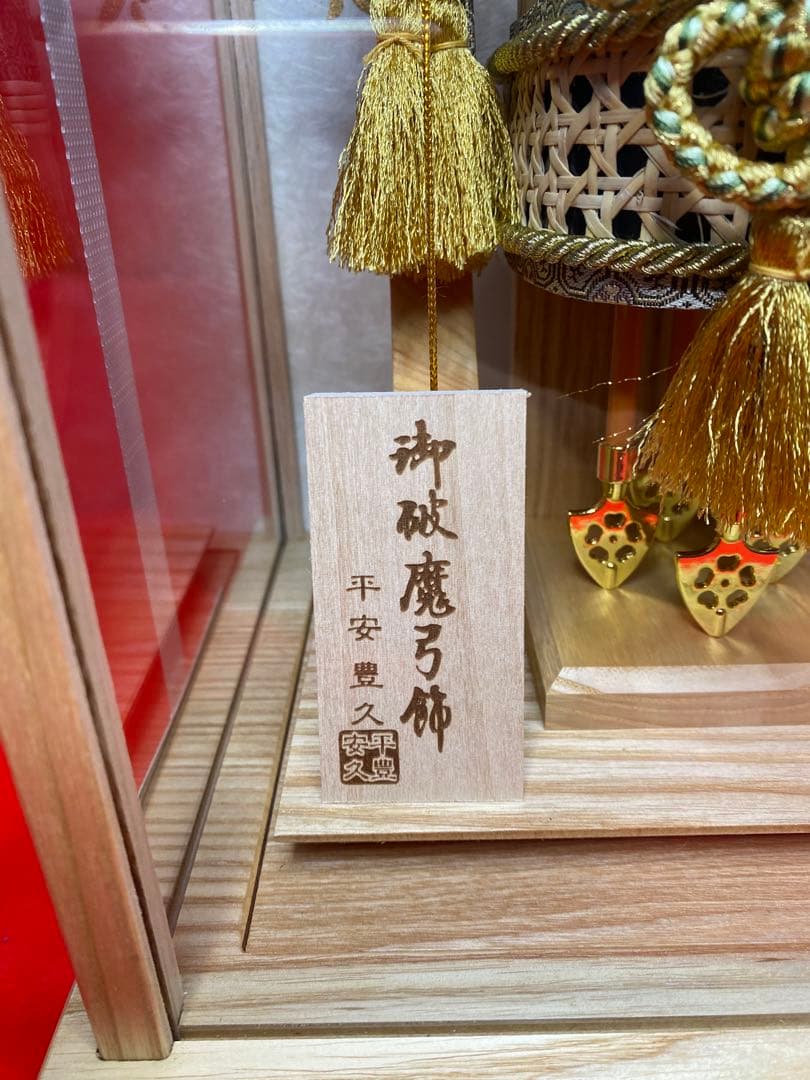 御破魔弓飾
平安豊久
平豊
安久